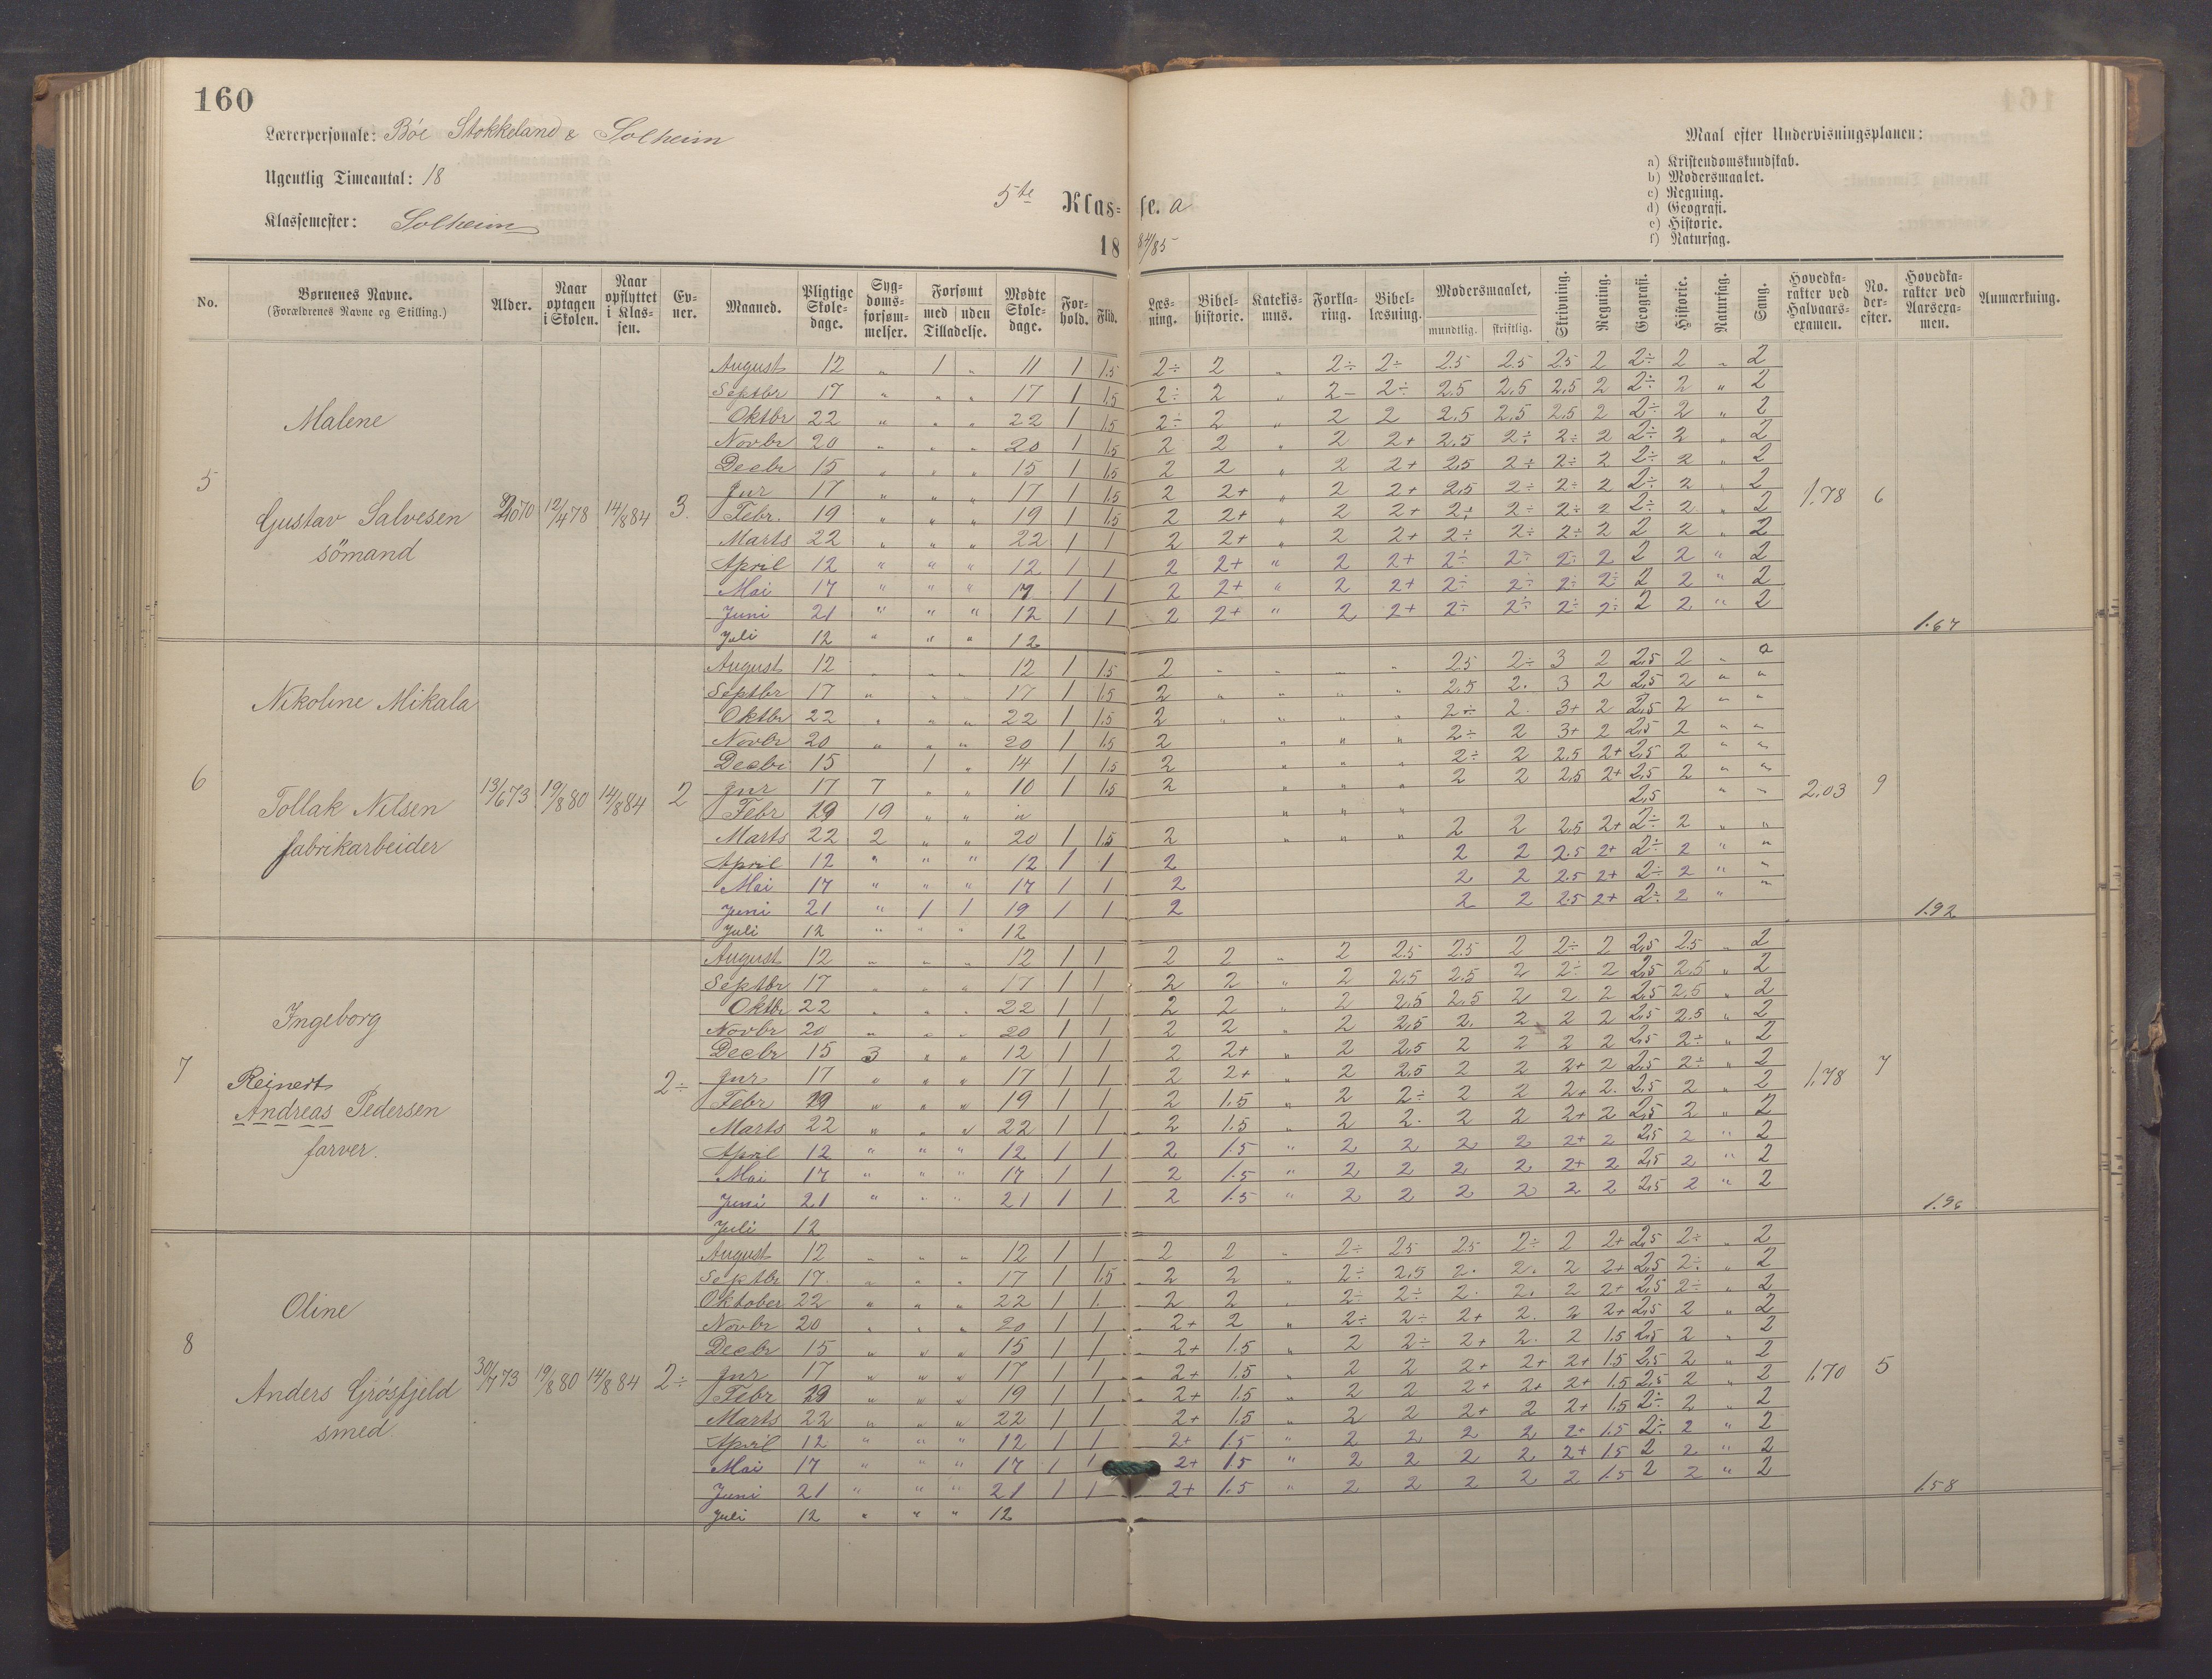 160
Lærerpersonale: Böe Stokkeland & Solheim
Ugentlig Timeantal: 18
Klassemester: Solheim
5te Klasse. a
18 84/85
Maal efter Undervisningsplanen:
a) Kristendomskundskab.
b) Modersmaalet.
c) Regning.
d) Geografi.
e) Historie.
f) Naturfag.
No. Børnenes Navne. (Forældrenes Navne og Stilling.) Alder. Naar optagen i Skolen. Naar opflyttet i Klassen. Evner. Maaned. Pligtige Skoledage. Sygdomsforsømmelser. Forsømt med uden Tilladelse. Mødte Skoledage. Forhold. Flid. Læsning. Bibelhistorie. Katekismus. Forklaring. Bibellæsning. Modersmaalet, mundtlig. skriftlig. Skrivning. Regning. Geografi. Historie. Naturfag. Sang. Hovedkarakter ved Halvaarsexamen. No. derefter. Hovedkarakter ved Aarsexamen. Anmærkning.
5 Malene
Gustav Salvesen 12/4 78 14/8 84 3. 1.78 6
sömand
August 12 „ 1 „ 11 1 1.5 2÷ 2 „ 2÷ 2÷ 2.5 2.5 2.5 2 2÷ 2 „ 2
Septbr 17 „ „ „ 17 1 1.5 2÷ 2 „ 2– 2÷ 2.5 2.5 2.5 2 2÷ 2 „ 2
Oktbr 22 „ „ „ 22 1 1.5 2÷ 2 „ 2 2 2.5 2.5 2.5 2 2÷ 2 „ 2
Novbr 20 „ „ „ 20 1 1.5 2 2 „ 2 2+ 2.5 2÷ 2÷ 2 2÷ 2 „ 2
Decbr 15 „ „ „ 15 1 1.5 2 2 „ 2 2+ 2.5 2÷ 2÷ 2 2÷ 2 „ 2
Jnr 17 „ „ „ 17 1 1.5 2 2+ „ 2 2+ 2.5 2÷ 2÷ 2 2÷ 2 „ 2
Febr. 19 „ „ „ 19 1 1.5 2 2+ „ 2 2+ 2÷ 2÷ 2÷ 2 2÷ 2 „ 2
Marts 22 „ „ „ 22 1 1 2 2+ „ 2 2+ 2÷ 2÷ 2÷ 2 2 2 „ 2
April 12 „ „ „ 12 1 1 2 2+ „ 2 2+ 2÷ 2÷ 2÷ 2 2 2 „ 2
Mai 17 „ „ „ 17 1 1 2 2+ „ 2 2+ 2÷ 2÷ 2÷ 2÷ 2 2 „ 2
Juni 21 „ „ „ 12 1 1 2 2+ „ 2 2+ 2÷ 2÷ 2÷ 2÷ 2 2 „ 2
Juli 12 „ „ „ 12 1.67
6 Nikoline Mikala
Tollak Nilsen 13/6 73 19/8 80 14/8 84 2 2.03 9
fabrikarbeider
August 12 „ „ „ 12 1 1.5 2 „ „ „ 2.5 2÷ 3 2 2.5 2 „
Septbr 17 „ „ „ 17 1 1.5 2 „ „ „ „ 2.5 2. 3 2 2.5 2 „ „
Oktbr 22 „ „ „ 22 1 1.5 2 „ „ „ „ 2÷ 2. 3+ 2 2.5 2 „ „
Novbr 20 „ „ „ 20 1 1.5 2 „ „ „ 2÷ 2 3+ 2 2.5 2 „ „
Decbr 15 1 „ 14 1 1.5 2 „ „ „ 2÷ 2 2.5 2+ 2.5 2 „ „
Jnr 17 7 „ „ 10 1 1.5 2 „ „ „ 2 2 2.5 2+ 2.5 2 „ „
Febr 19 19 „ „ „ „ „ „ 2.5 „ „
Marts 22 2 „ „ 20 1 1.5 2 „ „ „ 2 2 2.5 2+ 2÷ 2 „ „
April 12 „ „ „ 12 1 1 2 2 2 2.5 2+ 2÷ 2 „ „
Mai 17 „ „ „ 17 1 1 2 2 2 2.5 2+ 2÷ 2 „ „
Juni 21 „ 1 1 19 1 1 2 2 2 2.5 2+ 2÷ 2 „ „
Juli 12 „ „ „ 12 1.92
7 Ingeborg
Reinert
Andreas Pedersen 2÷ 1.78 7
farver.
August 12 „ „ „ 12 1 1 2 2 „ 2 2.5 2.5 2 2÷ 2 2.5 2.5 „ 2
Septbr 17 „ „ „ 17 1 1 2 2 „ 2 2.5 2.5 2 2÷ 2 2.5 2.5 „ 2
Oktbr 22 „ „ „ 22 1 1 2 2 „ 2 2.5 2.5 2 2 2 2.5 2.5 „ 2
Novbr 20 „ „ „ 20 1 1 2 2 „ 2 2.5 2. 2 2 2 2.5 2.5 „ 2
Decbr 15 3 „ „ 12 1 1 2 2+ „ 2 2.5 2 2 2 2 2.5 2÷ „ 2
Jnr 17 „ „ „ 17 1 1 2 2+ „ 2 2.5 2 2 2+ 2 2.5 2÷ „ 2
Febr 19 „ „ „ 19 1 1 2 1.5 „ 2 2÷ 2 2 2+ 2. 2.5 2 „ 2
Marts 22 „ „ „ 22 1 1 2 1.5 „ 2 2. 2 2 2+ 2 2.5 2 „ 2
April 12 „ „ „ 12 1 1 2 1.5 „ 2 2 2 2 2+ 2 2.5 2 „ 2
Mai 17 „ „ „ 17 1 1 2 1.5 „ 2 2 2 2 2+ 2 2.5 2 „ 2
Juni 21 „ „ „ 21 1 1 2 1.5 „ 2 2 2 2 2 2 2.5 2 „ 2
Juli 12 1.96
8 Oline
Anders Grösfjeld 30/7 73 19/8 80 14/8 84 2÷ 1.70 5
smed.
August 12 „ „ „ 12 1 1 2 2 „ 2÷ 2.5 2.5 2÷ 2 2+ 2.5 2÷ „ 2
Septbr 17. „ „ „ 17 1 1.5 2 2 „ 2÷ 2.5 2. 2. 2 2+ 2.5 2÷ „ 2
Oktober 22 „ „ „ 22 1 1. 2 2 „ 2÷ 2÷ 2. 2. 2 2+ 2.5 2÷ „ 2
Novbr 20 „ „ „ 20 1 1 2+ 2 „ 2÷ 2÷ 2+ 2. 2 2+ 2.5 2 „ 2
Decbr 15 „ „ „ 15 1 1 2+ 1.5 „ 2 2÷ 2+ 2. 2 1.5 2.5 2 „ 2
Jnr 17 „ „ „ 17 1 1 2+ 1.5 „ 2 2 2+ 2+ 2+ 1.5 2.5 2 „ 2
Febr 19 „ „ „ 19 1 1 2+ 1.5 „ 2 2 2+ 2+ 2+ 1.5 2.5 2 „ 2
Marts 22 „ „ „ 22 1 1 2+ 1.5 „ 2 2 2+ 2 2+ 1.5 2÷ 2 „ 2
April 12 „ „ „ 12 1 1 2+ 1.5 „ 2 2 2 2 2+ 1.5 2÷ 2 „ 2
Mai 17 „ „ „ 17 1 1 2+ 1.5 „ 2 2 2 2 2+ 1.5 2 2 „ 2
Juni 21 „ „ „ 21 1 1 2+ 1.5 „ 2 2 2 2 2 1.5 2 2 „ 2
Juli 12 „ „ „ 12 1.58